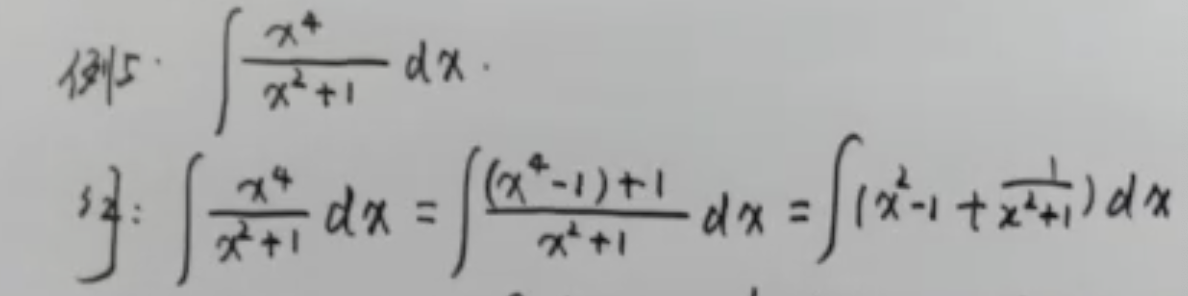 例5. ∫ x⁴/(x²+1) dx.
解: ∫ x⁴/(x²+1) dx = ∫ ((x⁴-1)+1)/(x²+1) dx = ∫ (x²-1 + 1/(x²+1)) dx